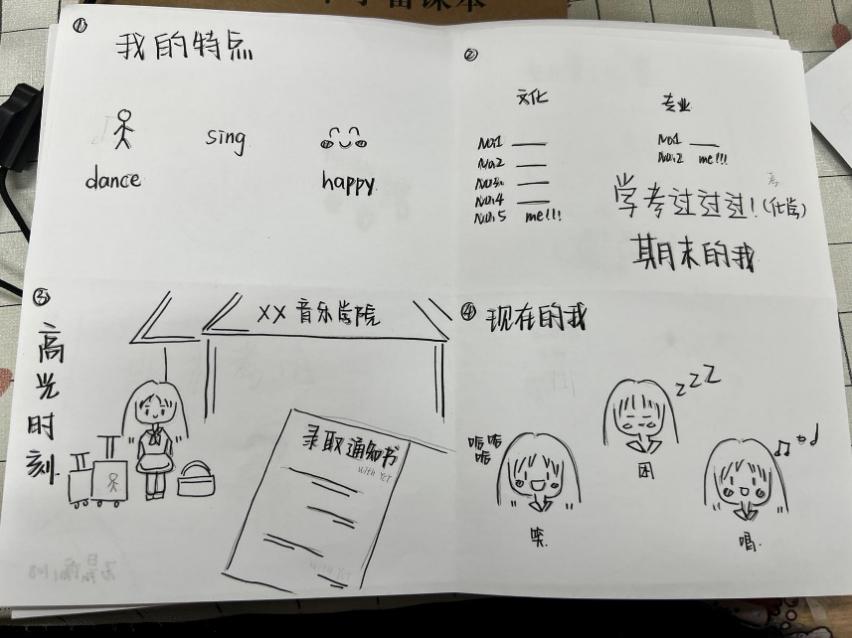 ①
我的特点
dance
sing
happy
②
文化
No.1
No.2
No.3
No.4
No.5 me!!!
专业
No.1
No.2 me!!!
学考过过过!(化学)
期末的我
③
高光时刻
XX音乐学院
录取通知书
④ 现在的我
哈哈哈
笑
zzz
困
唱